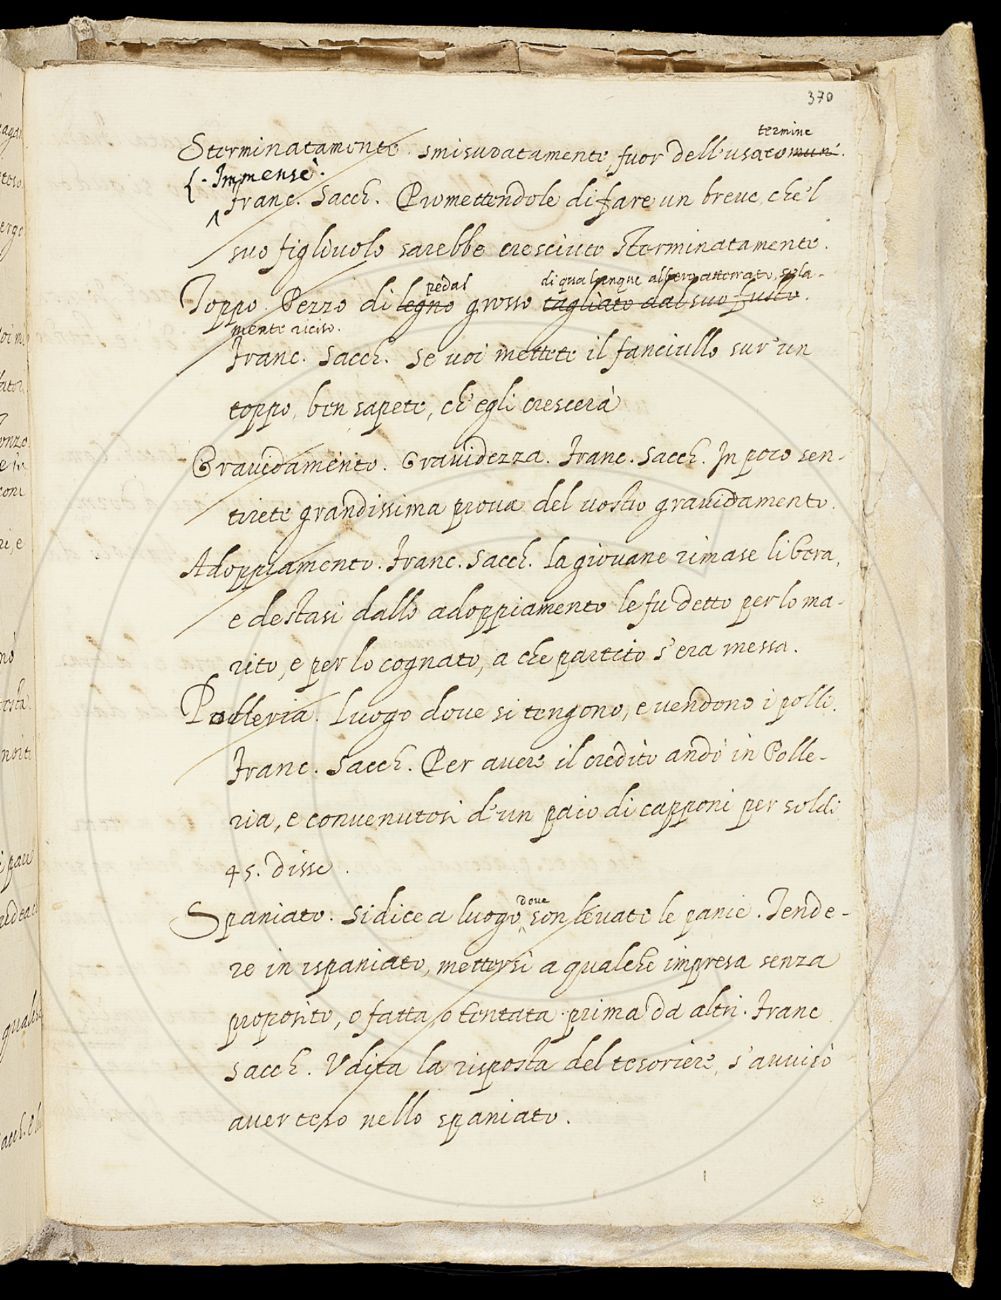 370
termine
Sterminatamente. smisuratamente, fuor dell'usato comune.
L. Immensè.
Franc. Sacch. Promettendole di fare un breve, che'l
suo figliuolo sarebbe cresciuto sterminatamente.
pedal di qualunque albero atterrato, sola-
Toppo. Pezzo di legno grosso tagliato dal suo fusto.
mente riciso.
Franc. Sacch. Se voi mettete il fanciullo sur'un
toppo, ben sapete, ch'egli crescerà
Gravidamento. Gravidezza. Franc. Sacch. In poco sen-
tirete grandissima prova del vostro gravidamento.
Adoppiamento. Franc. Sacch. La giovane rimase libera,
e destasi dallo adoppiamento le fu detto per lo ma-
rito, e per lo cognato, a che partito s'era messa.
Polleria. Luogo dove si tengono, e vendono i polli.
Franc. Sacch. Per avere il credito andò in Polle-
ria, e convenutosi d'un paio di capponi per soldi
45. disse.
dove
Spaniato. Si dice a luogo son levate le panie. Tende-
re in ispaniato, mettersi a qualche impresa senza
proposito, o fatta, o tentata prima da altri. Franc
Sacch. Udita la risposta del tesoriere, s'avvisò
aver teso nello spaniato.